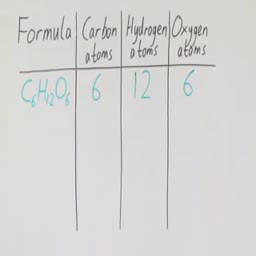 Formula Carbon atoms Hydrogen atoms Oxygen atoms
C₆H₁₂O₆ 6 12 6